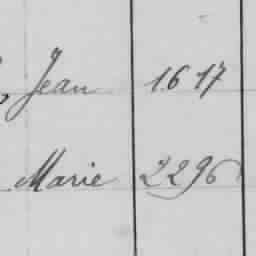 Jean 1617
Marie 2296